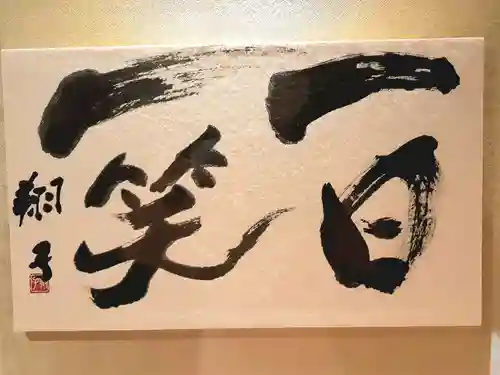 一日
一笑
翔子